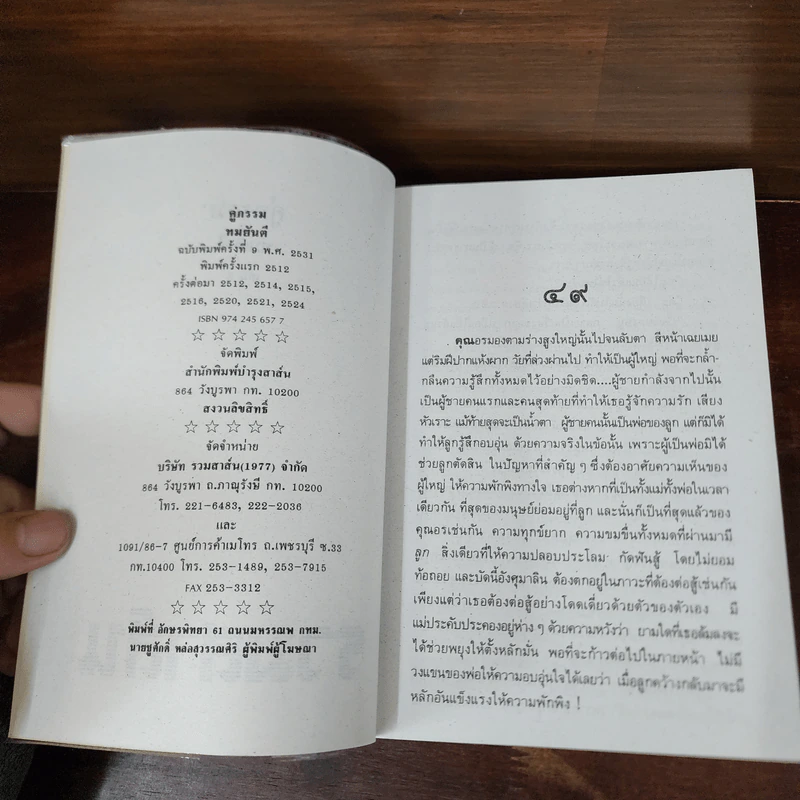 คู่กรรม
ทมยันตี
ฉบับพิมพ์ครั้งที่ 9 พ.ศ. 2531
พิมพ์ครั้งแรก 2512
ครั้งต่อมา 2512, 2514, 2515,
2516, 2520, 2521, 2524
ISBN 974 245 657 7
☆ ☆ ☆ ☆ ☆
จัดพิมพ์
สำนักพิมพ์บำรุงสาส์น
864 วังบูรพา กท. 10200
สงวนลิขสิทธิ์
☆ ☆ ☆ ☆ ☆
จัดจำหน่าย
บริษัท รวมสาส์น(1977) จำกัด
864 วังบูรพา ถ.ภาณุรังษี กท. 10200
โทร. 221-6483, 222-2036
และ
1091/86-7 ศูนย์การค้าเมโทร ถ.เพชรบุรี ซ.33
กท.10400 โทร. 253-1489, 253-7915
FAX 253-3312
☆ ☆ ☆ ☆ ☆
พิมพ์ที่ อักษรพิทยา 61 ถนนมหรรณพ กทม.
นายชูศักดิ์ หล่อสุวรรณศิริ ผู้พิมพ์ผู้โฆษณา
๔๙
คุณอรมองตามร่างสูงใหญ่นั้นไปจนลับตา สีหน้าเฉยเมย
แต่ริมฝีปากแห้งผาก วัยที่ล่วงผ่านไป ทำให้เป็นผู้ใหญ่ พอที่จะกล้ำ-
กลืนความรู้สึกทั้งหมดไว้อย่างมิดชิด....ผู้ชายกำลังจากไปนั้น
เป็นผู้ชายคนแรกและคนสุดท้ายที่ทำให้เธอรู้จักความรัก เสียง
หัวเราะ แม้ท้ายสุดจะเป็นน้ำตา ผู้ชายคนนั้นเป็นพ่อของลูก แต่ก็มิได้
ทำให้ลูกรู้สึกอบอุ่น ด้วยความจริงในข้อนั้น เพราะผู้เป็นพ่อมิได้
ช่วยลูกตัดสิน ในปัญหาที่สำคัญ ๆ ซึ่งต้องอาศัยความเห็นของ
ผู้ใหญ่ ให้ความพักพิงทางใจ เธอต่างหากที่เป็นทั้งแม่ทั้งพ่อในเวลา
เดียวกัน ที่สุดของมนุษย์ย่อมอยู่ที่ลูก และนั่นก็เป็นที่สุดแล้วของ
คุณอรเช่นกัน ความทุกข์ยาก ความขมขื่นทั้งหมดที่ผ่านมามี
ลูก สิ่งเดียวที่ให้ความปลอบประโลม กัดฟันสู้ โดยไม่ยอม
ท้อถอย และบัดนี้อังศุมาลิน ต้องตกอยู่ในภาวะที่ต้องต่อสู้เช่นกัน
เพียงแต่ว่าเธอต้องต่อสู้อย่างโดดเดี่ยวด้วยตัวของตัวเอง มี
แม่ประคับประคองอยู่ห่าง ๆ ด้วยความหวังว่า ยามใดที่เธอล้มลงจะ
ได้ช่วยพยุงให้ตั้งหลักมั่น พอที่จะก้าวต่อไปในภายหน้า ไม่มี
วงแขนของพ่อให้ความอบอุ่นใจได้เลยว่า เมื่อลูกคว้างกลับมาจะมี
หลักอันแข็งแรงให้ความพักพิง !